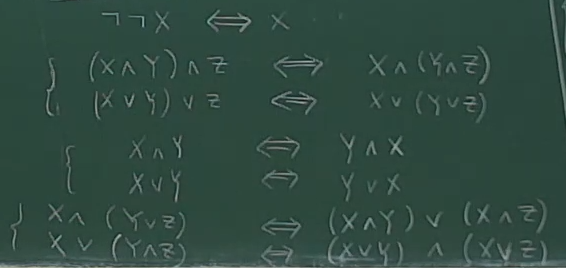 ¬¬X ⟺ X
(X∧Y)∧Z ⟺ X∧(Y∧Z)
(X∨Y)∨Z ⟺ X∨(Y∨Z)
X∧Y ⟺ Y∧X
X∨Y ⟺ Y∨X
X∧(Y∨Z) ⟺ (X∧Y)∨(X∧Z)
X∨(Y∧Z) ⟺ (X∨Y)∧(X∨Z)